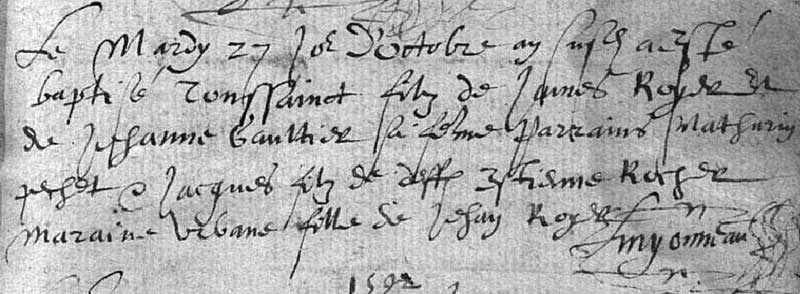 Le Mardy 27 Jor D'octobre an susd a esté
baptisé Toussainct filz de James Royer et
de Jehanne Gaultier sa feme Parrains Mathurin
pechet & Jacques filz de deff Estienne Rocher
Maraine Urbane fille de Jehan Royer
1592